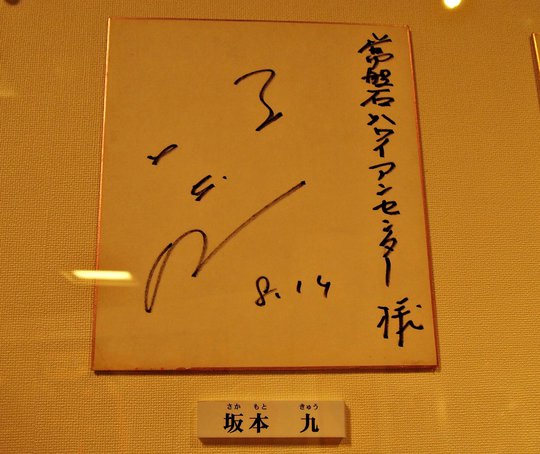 常磐ハワイアンセンター 様
8.14
さか もと きゅう
坂本 九